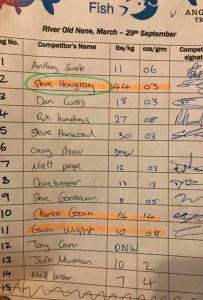 Fish
River Old Nene, March – 29th September
ag No. Competitor's Name lbs/kg ozs/grm Compet signat
1 Anthony 11 06
2 Steve Hemigray 44 03
3 Dan Curtis 18 03
4 Rch Humphreys 27 08
5 Steve Harwood 30 03
6 Craig Shaw DNW
7 Matt page 12 03
8 Dave 13 13
9 Steve Goodwin 8 05
10 Charlie 14 14
11 Gavin Wright 10 08
12 Tony DNW
13 Justin Newman 10 2
14 Matt 7 4
15